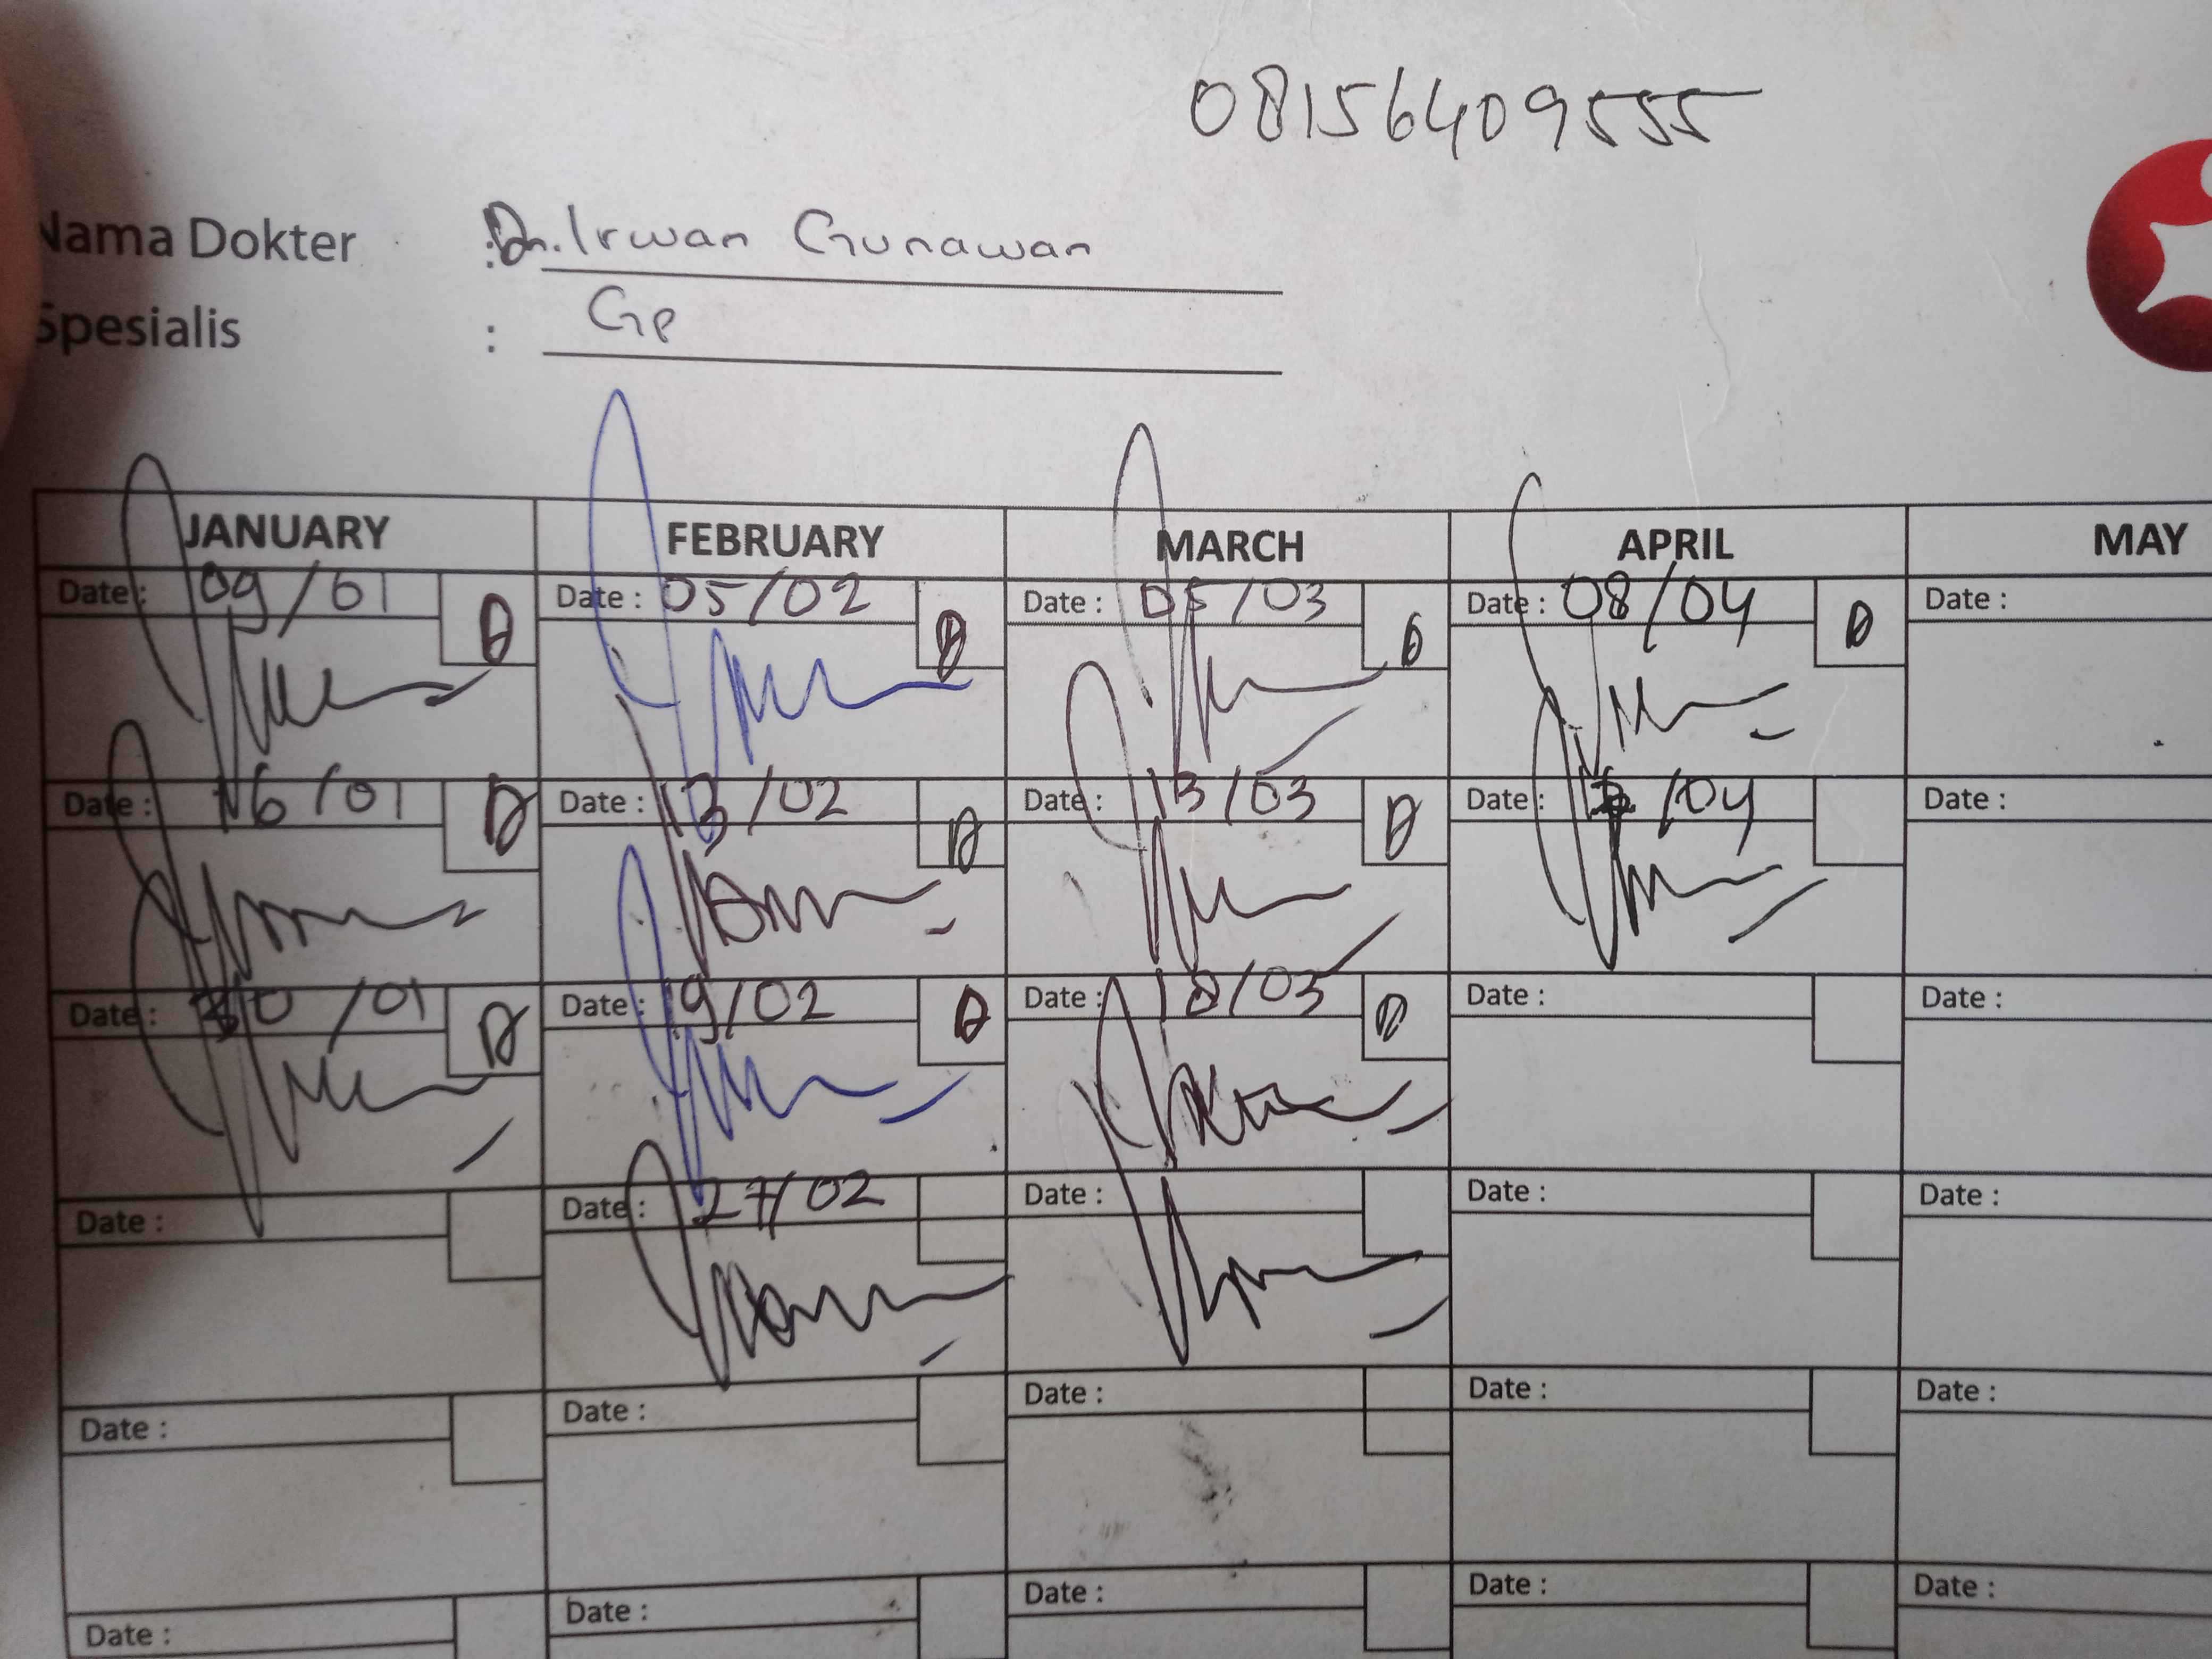 08156409555
Nama Dokter : Dr. Irwan Gunawan
Spesialis : Gp
JANUARY FEBRUARY MARCH APRIL MAY
Date : 09/01 Date : 05/02 Date : 05/03 Date : 08/04 Date :
Date : 16/01 Date : 13/02 Date : 13/03 Date : /04 Date :
Date : /01 Date : 19/02 Date : 18/03 Date : Date :
Date : Date : 27/02 Date : Date : Date :
Date : Date : Date : Date : Date :
Date : Date : Date : Date : Date :